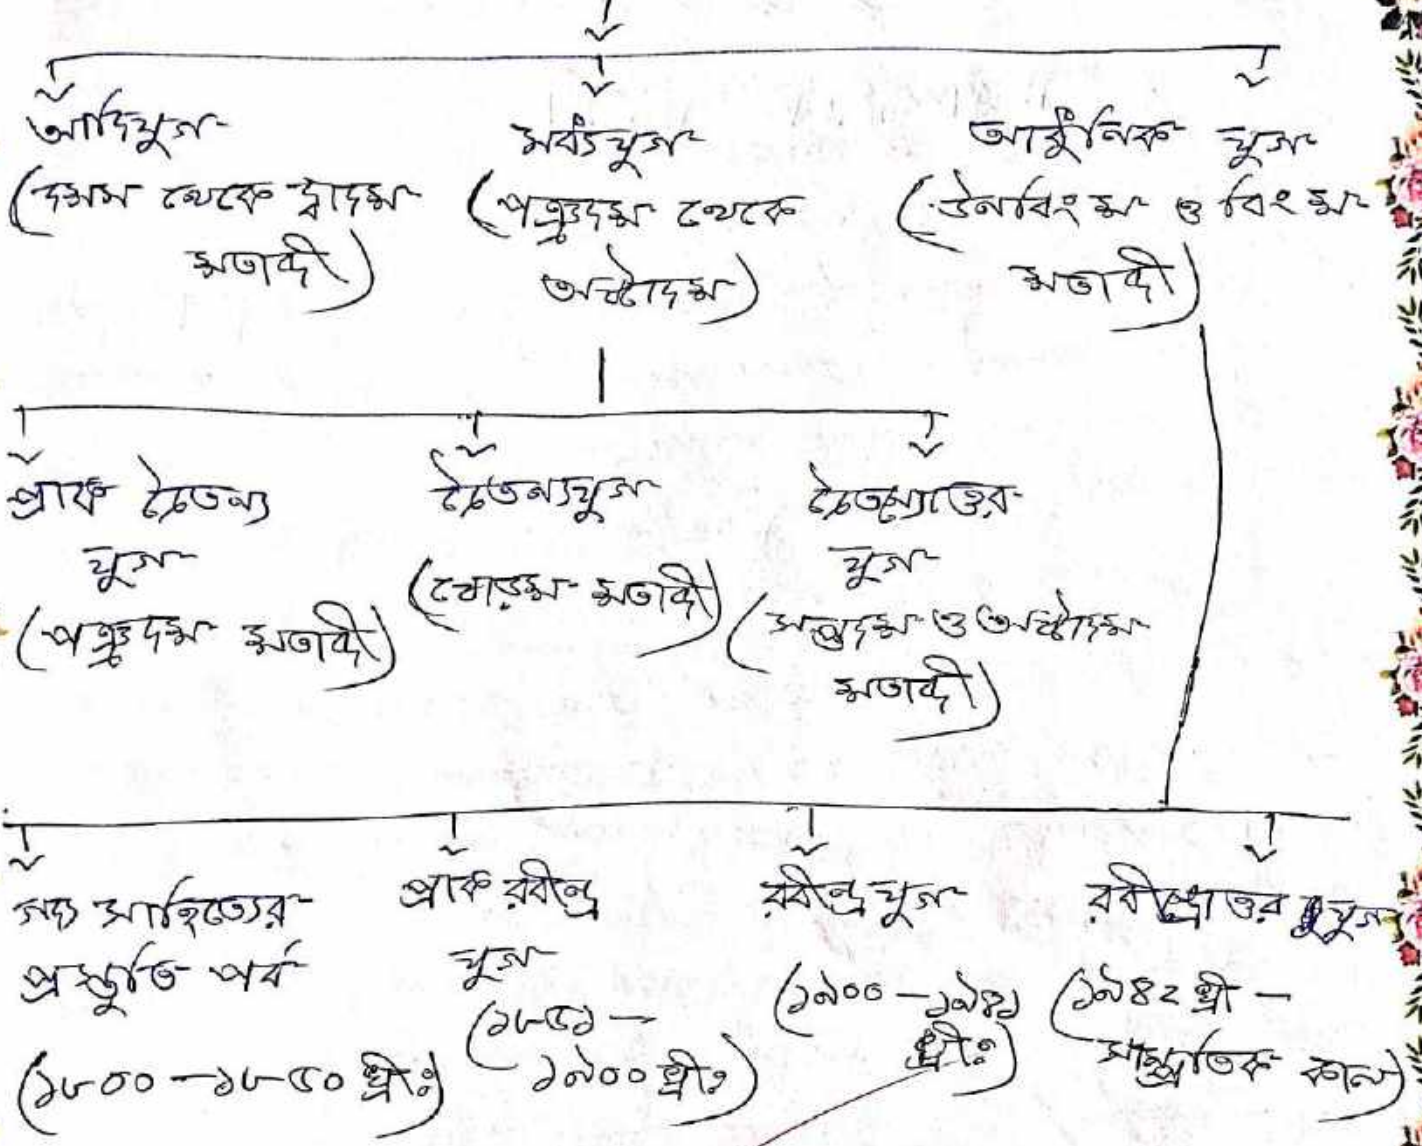 আদিযুগ
(দশম থেকে দ্বাদশ
শতাব্দী)
মধ্যযুগ
(পঞ্চদশ থেকে
অষ্টাদশ)
আধুনিক যুগ
(ঊনবিংশ ও বিংশ
শতাব্দী)
প্রাক চৈতন্য
যুগ
(পঞ্চদশ শতাব্দী)
চৈতন্যযুগ
(ষোড়শ শতাব্দী)
চৈতন্যোত্তর
যুগ
(সপ্তদশ ও অষ্টাদশ
শতাব্দী)
গদ্য সাহিত্যের
প্রস্তুতি পর্ব
(১৮০০ – ১৮৫০ খ্রীঃ)
প্রাক রবীন্দ্র
যুগ
(১৮৫১ –
১৯০০ খ্রীঃ)
রবীন্দ্র যুগ
(১৯০০ – ১৯৪১
খ্রীঃ)
রবীন্দ্রোত্তর যুগ
(১৯৪২ খ্রী –
সাম্প্রতিক কাল)